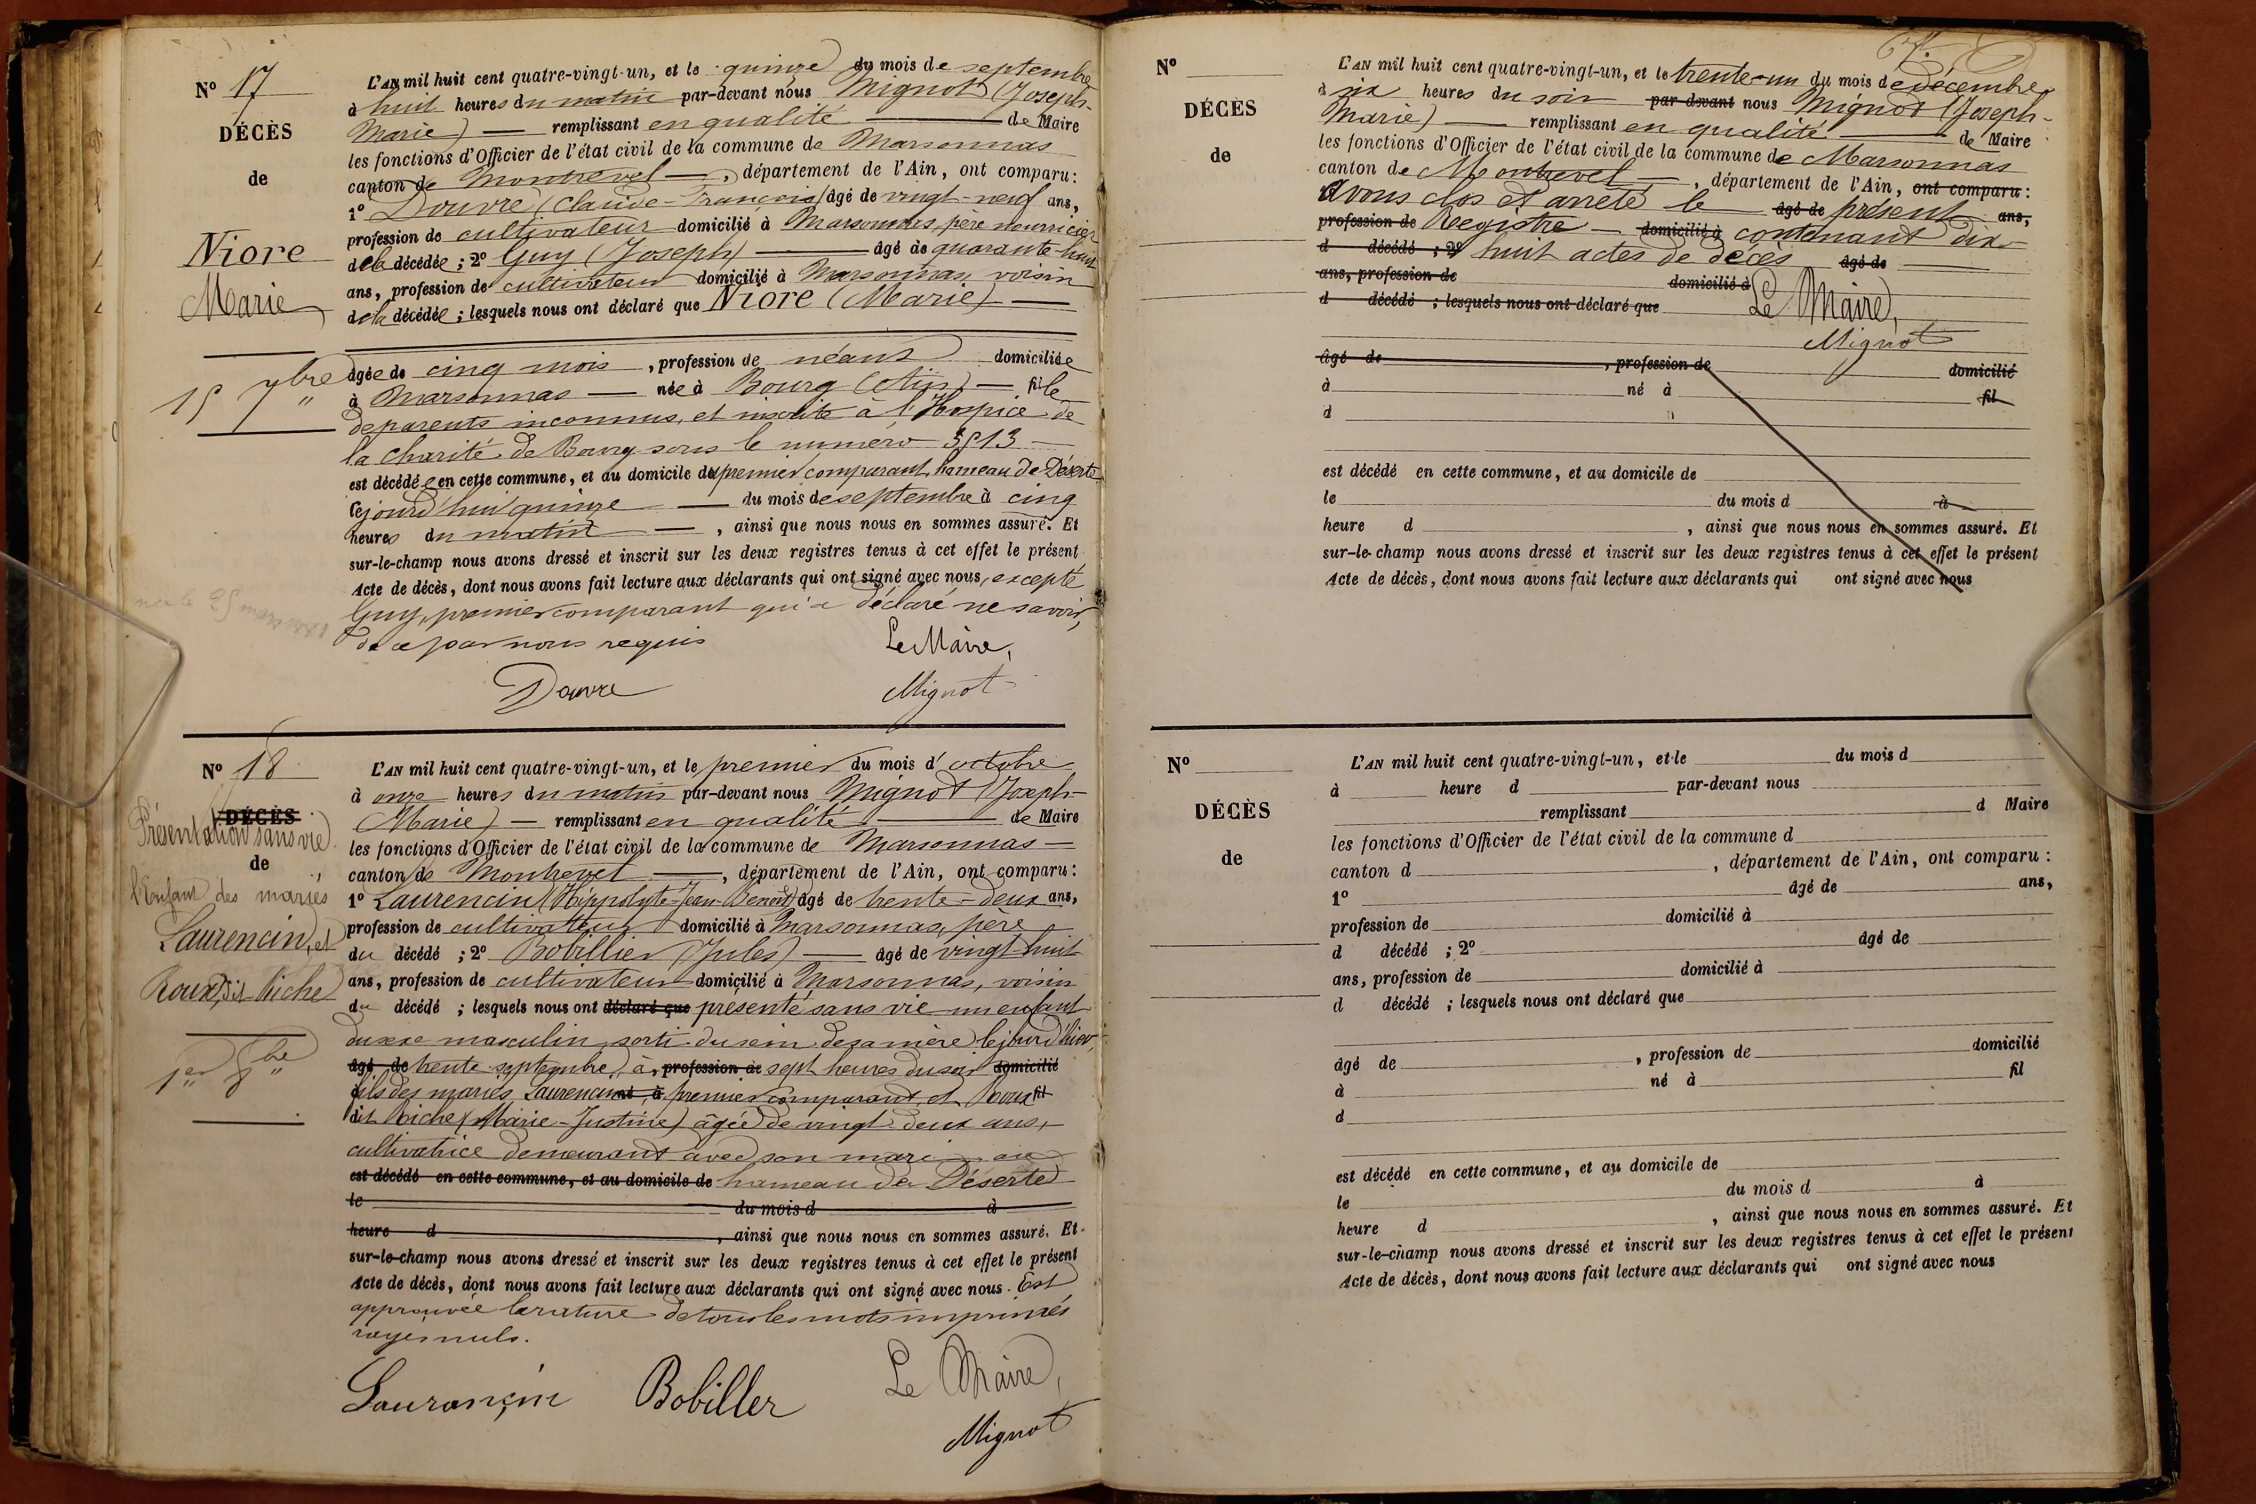 N° 17
DÉCÈS
de
Niore
Marie
15 7bre
L'AN mil huit cent quatre-vingt-un, et le quinze du mois de septembre
à huit heures du matin par-devant nous Mignot (Joseph-
Marie) — remplissant en qualité — de Maire
les fonctions d'Officier de l'état civil de la commune de Marsonnas
canton de Montrevel —, département de l'Ain, ont comparu :
1° Douvre (Claude-François) âgé de vingt-neuf ans,
profession de cultivateur domicilié à Marsonnas, père nourricier
de la décédée ; 2° Guy (Joseph) — âgé de quarante-huit
ans, profession de cultivateur domicilié à Marsonnas, voisin
de la décédée ; lesquels nous ont déclaré que Niore (Marie) —
âgée de cinq mois, profession de néant domiciliée
à Marsonnas — née à Bourg (Ain) — fille
de parents inconnus, et inscrite à l'Hospice de
la charité de Bourg sous le numéro 3513 —
est décédée en cette commune, et au domicile du premier comparant, hameau de Déserte
le jourd'hui quinze — du mois de septembre à cinq
heures du matin —, ainsi que nous nous en sommes assuré. Et
sur-le-champ nous avons dressé et inscrit sur les deux registres tenus à cet effet le présent
Acte de décès, dont nous avons fait lecture aux déclarants qui ont signé avec nous, excepté
Guy, premier comparant qui a déclaré ne savoir,
de ce par nous requis
Le Maire,
Douvre
Mignot
N° 18
DÉCÈS
Présentation sans vie
de
l'Enfant des mariés
Laurencin, et
Roux dit Piche
1er 8bre
L'AN mil huit cent quatre-vingt-un, et le premier du mois d'octobre
à onze heures du matin par-devant nous Mignot (Joseph-
Marie) — remplissant en qualité — de Maire
les fonctions d'Officier de l'état civil de la commune de Marsonnas —
canton de Montrevel —, département de l'Ain, ont comparu :
1° Laurencin (Hippolyte-Jean-Benoît) âgé de trente-deux ans,
profession de cultivateur domicilié à Marsonnas, père
du décédé ; 2° Bobillier (Jules) — âgé de vingt-huit
ans, profession de cultivateur domicilié à Marsonnas, voisin
du décédé ; lesquels nous ont déclaré que présenté sans vie un enfant
du sexe masculin sorti du sein de sa mère le jour d'hier,
âgé de trente septembre, à, profession de sept heures du soir domicilié
fils des mariés Laurencin né à premier comparant, et Roux fil
dit Piche (Marie-Justine) âgée de vingt deux ans,
cultivatrice demeurant avec son mari au
est décédé en cette commune, et au domicile de hameau de Déserte
le du mois d à
heure d, ainsi que nous nous en sommes assuré. Et
sur-le-champ nous avons dressé et inscrit sur les deux registres tenus à cet effet le présent
Acte de décès, dont nous avons fait lecture aux déclarants qui ont signé avec nous. Est
approuvée la rature de tous les mots imprimés
rayés nuls.
Laurançin Bobiller Le Maire,
Mignot
N°
DÉCÈS
de
L'AN mil huit cent quatre-vingt-un, et le trente-un du mois de décembre
à six heures du soir par-devant nous Mignot (Joseph-
Marie) — remplissant en qualité — de Maire
les fonctions d'Officier de l'état civil de la commune de Marsonnas
canton de Montrevel —, département de l'Ain, ont comparu :
avons clos et arrêté le âgé de présent ans,
profession de Registre — domicilié à contenant dix-
d décédé ; 2° huit actes de décès âgé de
ans, profession de domicilié à
d décédé ; lesquels nous ont déclaré que Le Maire,
Mignot
âgé de, profession de domicilié
à né à fil
d
est décédé en cette commune, et au domicile de
le du mois d à
heure d, ainsi que nous nous en sommes assuré. Et
sur-le-champ nous avons dressé et inscrit sur les deux registres tenus à cet effet le présent
Acte de décès, dont nous avons fait lecture aux déclarants qui ont signé avec nous
N°
DÉCÈS
de
L'AN mil huit cent quatre-vingt-un, et le du mois d
à heure d par-devant nous
remplissant d Maire
les fonctions d'Officier de l'état civil de la commune d
canton d, département de l'Ain, ont comparu :
1° âgé de ans,
profession de domicilié à
d décédé ; 2° âgé de
ans, profession de domicilié à
d décédé ; lesquels nous ont déclaré que
âgé de, profession de domicilié
à né à fil
d
est décédé en cette commune, et au domicile de
le du mois d à
heure d, ainsi que nous nous en sommes assuré. Et
sur-le-champ nous avons dressé et inscrit sur les deux registres tenus à cet effet le présent
Acte de décès, dont nous avons fait lecture aux déclarants qui ont signé avec nous